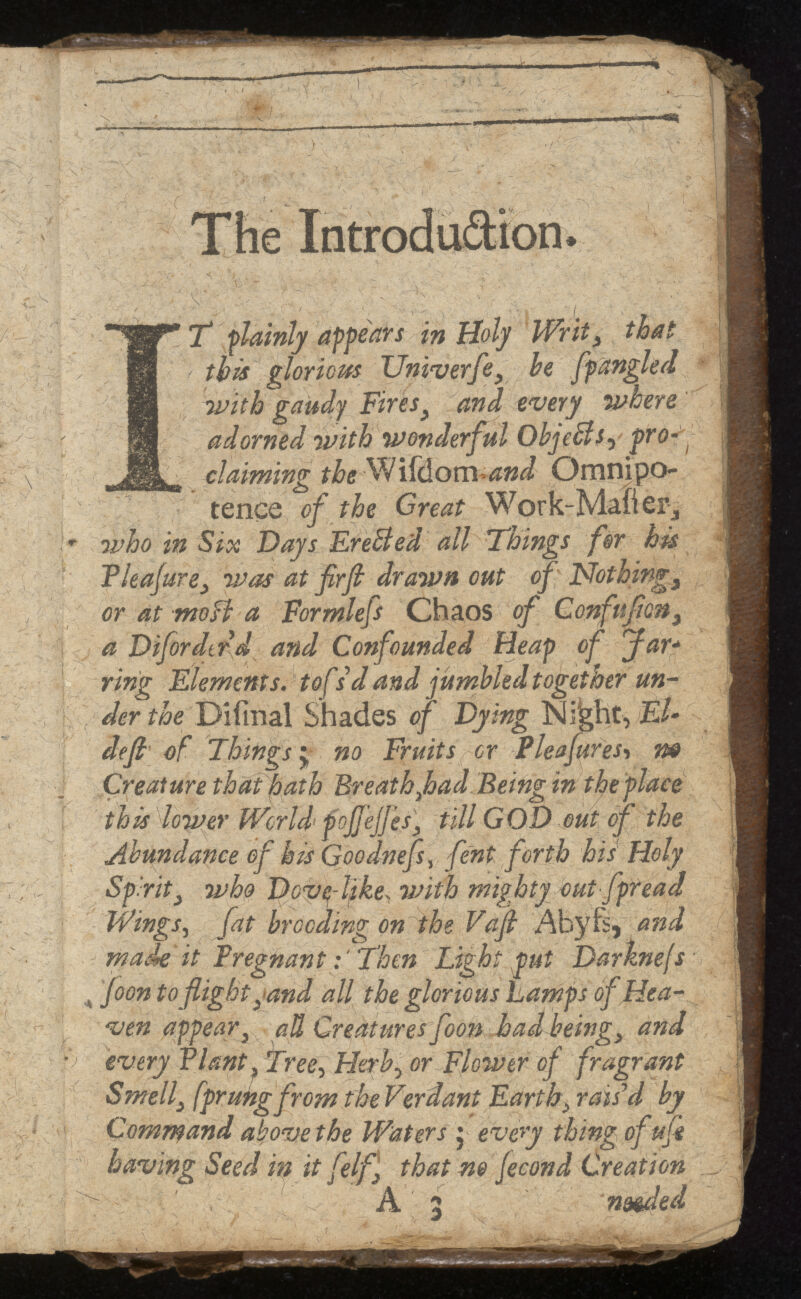 The Introduction.
IT plainly appears in Holy Writ, that
this glorious Univerſe, be ſpangled
with gaudy Fires, and every where
adorned with wonderful Objects, pro-
claiming the Wiſdom and Omnipo-
tence of the Great Work-Maſter,
who in Six Days Erected all Things for his
Pleaſure, was at firſt drawn out of Nothing,
or at moſt a Formleſs Chaos of Confuſion,
a Diſorder'd and Confounded Heap of Jar-
ring Elements. toſs'd and jumbled together un-
der the Diſmal Shades of Dying Night, El-
deſt of Things; no Fruits or Pleaſures, no
Creature that hath Breath,had Being in the place
this lower World poſſeſſes, till GOD out of the
Abundance of his Goodneſs, ſent forth his Holy
Spirit, who Dove-like, with mighty out-ſpread
Wings, ſat brooding on the Vaſt Abyſs, and
made it Pregnant: Then Light put Darkneſs
ſoon to flight, and all the glorious Lamps of Hea-
ven appear, all Creatures ſoon had being, and
every Plant, Tree, Herb, or Flower of fragrant
Smell, ſprung from the Verdant Earth, rais'd by
Command above the Waters; every thing of uſe
having Seed in it ſelf, that no ſecond Creation
A 3 needed